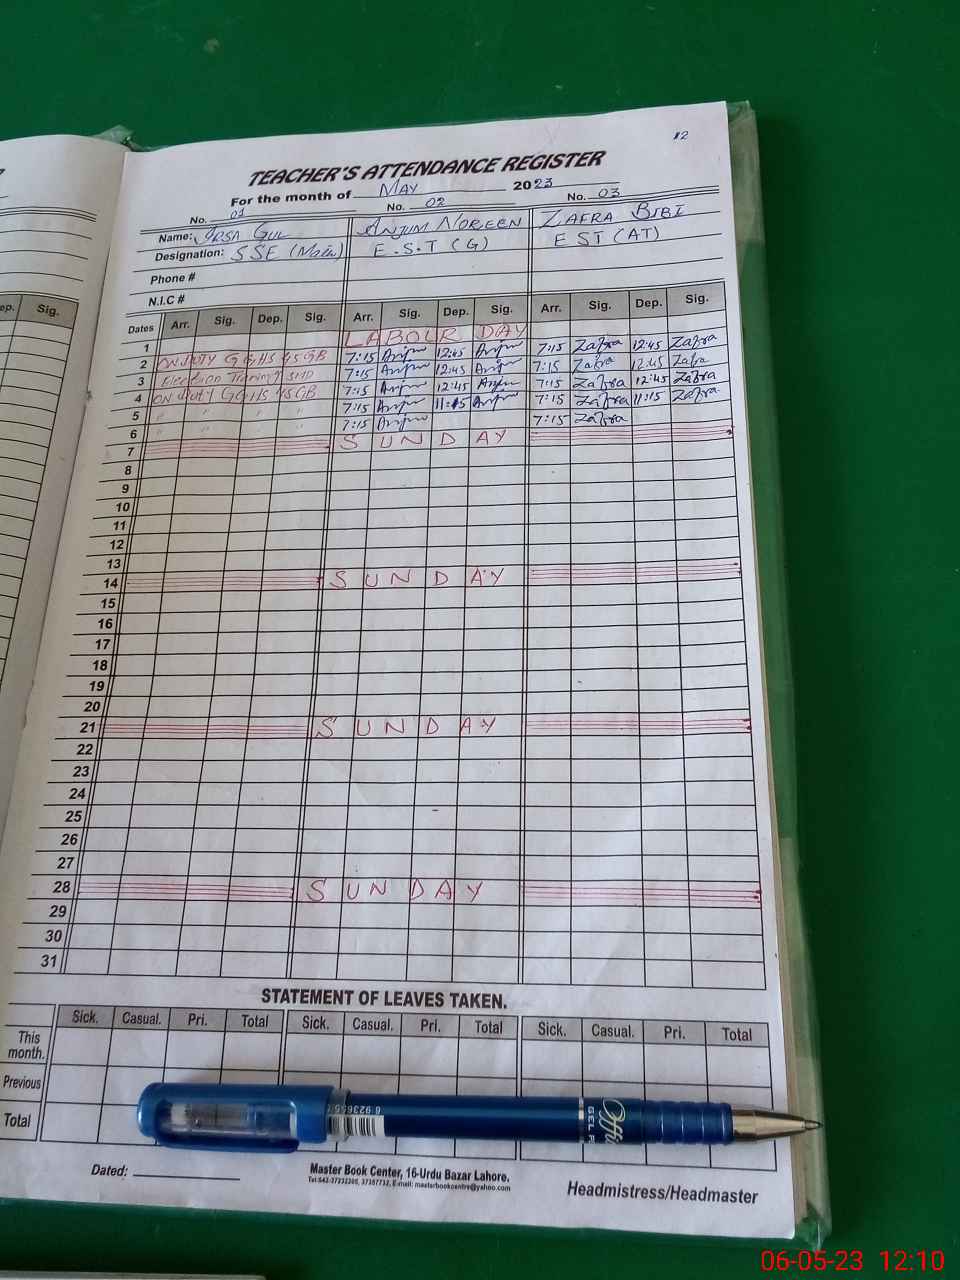 12
TEACHER'S ATTENDANCE REGISTER
For the month of MAY 2023
No. 01 No. 02 No. 03
Name: IRSA GUL ANJUM NOREEN ZAFRA BIBI
Designation: SSE (Math) E.S.T (G) EST (AT)
Phone #
N.I.C #
ep. Sig.
Dates Arr. Sig. Dep. Sig. Arr. Sig. Dep. Sig. Arr. Sig. Dep. Sig.
1 LABOUR DAY
2 ON DUTY GGHS 45 GB 7:15 Anjum 12:45 Anjum 7:15 Zafra 12:45 Zafra
3 Election Training 7:15 Anjum 12:45 Anjum 7:15 Zafra 12:45 Zafra
4 ON DUTY GGHS 45 GB 7:15 Anjum 12:45 Anjum 7:15 Zafra 12:45 Zafra
5 " " " " 7:15 Anjum 11:15 Anjum 7:15 Zafra 11:15 Zafra
6 " " " " 7:15 Anjum 7:15 Zafra
7 SUNDAY
8
9
10
11
12
13
14 SUNDAY
15
16
17
18
19
20
21 SUNDAY
22
23
24
25
26
27
28 SUNDAY
29
30
31
STATEMENT OF LEAVES TAKEN.
Sick. Casual. Pri. Total Sick. Casual. Pri. Total Sick. Casual. Pri. Total
This month.
Previous
Total
GEL
Dated:
Master Book Center, 16-Urdu Bazar Lahore.
E-mail: masterbookcentre@yahoo.com
Headmistress/Headmaster
06-05-23 12:10